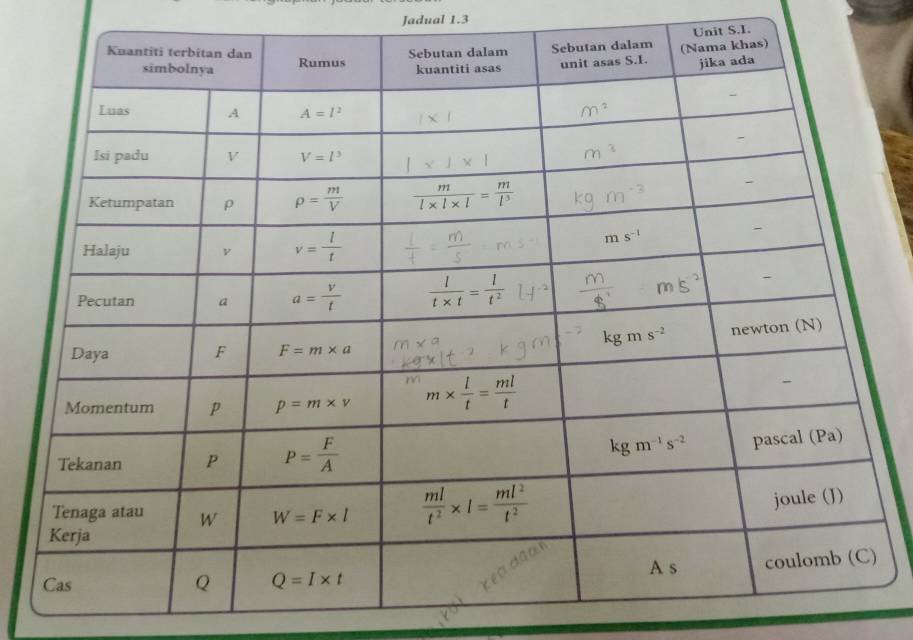 Jadual 1.3
Kuantiti terbitan dan simbolnya Rumus Sebutan dalam kuantiti asas Sebutan dalam unit asas S.I. Unit S.I. (Nama khas) jika ada
Luas A A = l² l × l m² –
Isi padu V V = l³ l × l × l m³ –
Ketumpatan ρ ρ = m/V m/(l × l × l) = m/l³ kg m⁻³ –
Halaju v v = l/t l/t = m/s = m s⁻¹ m s⁻¹ –
Pecutan a a = v/t l/(t × t) = l/t² lt⁻² m/s² ms⁻² –
Daya F F = m × a m × a kg m s⁻² kg m s⁻² newton (N)
Momentum p p = m × v m × l/t = ml/t –
Tekanan P P = F/A kg m⁻¹ s⁻² pascal (Pa)
Tenaga atau Kerja W W = F × l ml/t² × l = ml²/t² joule (J)
Cas Q Q = I × t A s coulomb (C)
keadaan